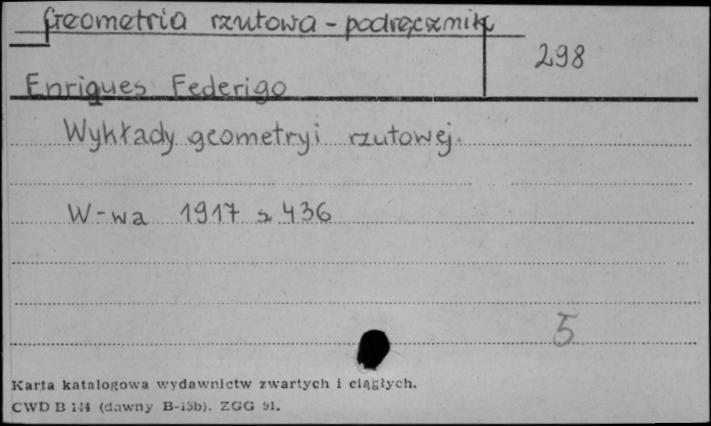 Geometria rzutowa - podręcznik
298
Enriques Federigo
Wykłady geometryi rzutowej.
W-wa 1917 s. 436
5
Karta katalogowa wydawnictw zwartych i ciągłych.
CWD B 144 (dawny B-15b). ZGG 91.